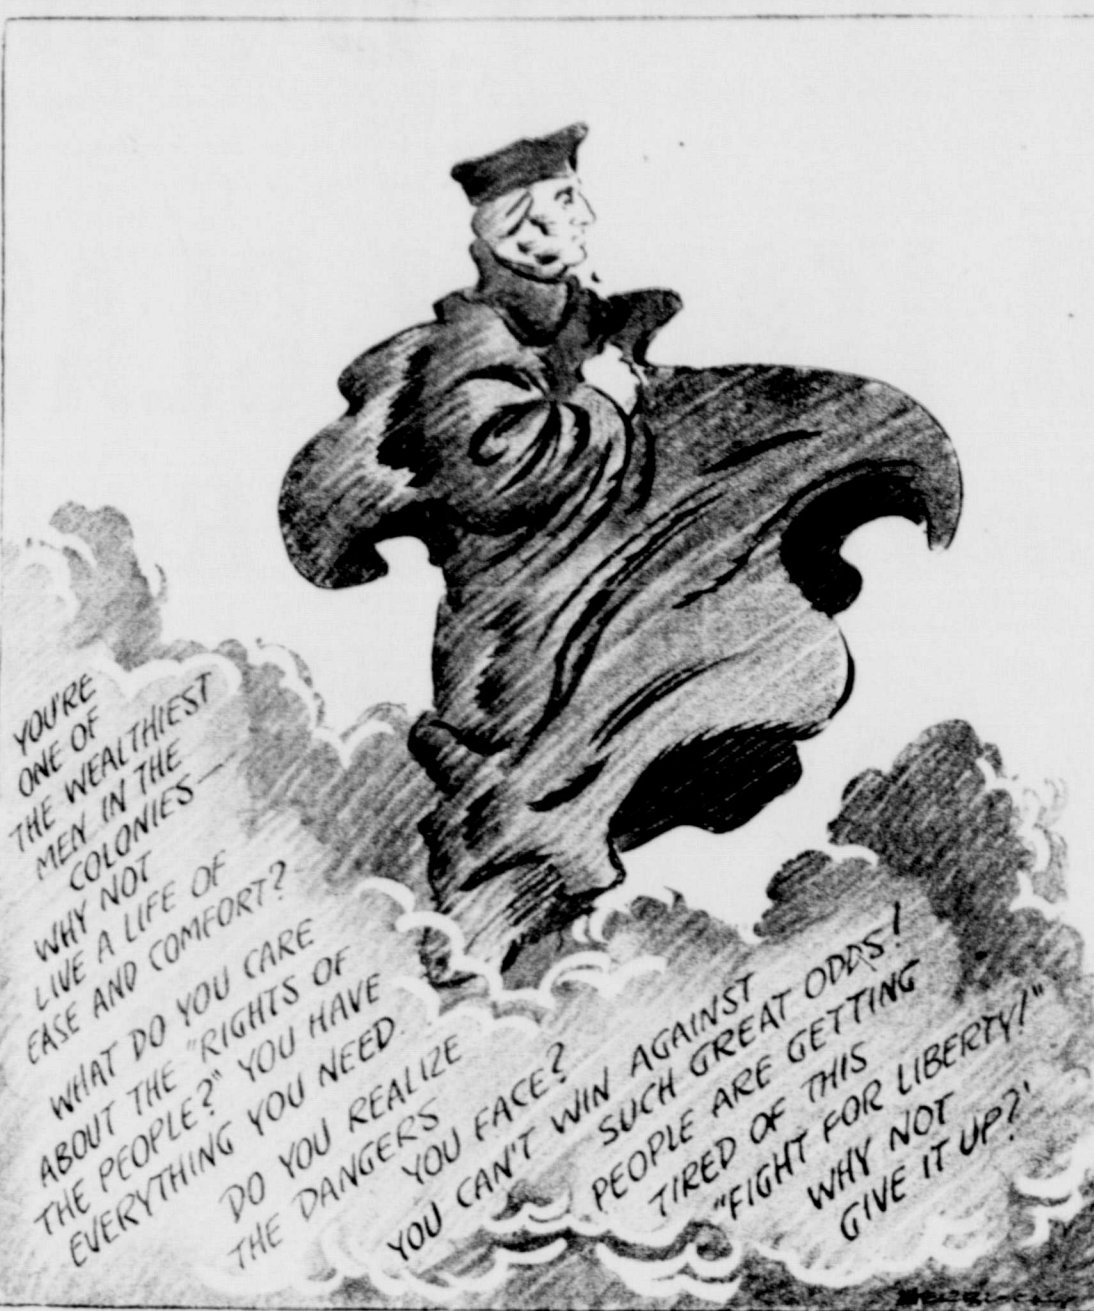 YOU'RE
ONE OF
THE WEALTHIEST
MEN IN THE
COLONIES—
WHY NOT
LIVE A LIFE OF
EASE AND COMFORT?
WHAT DO YOU CARE
ABOUT THE "RIGHTS OF
THE PEOPLE?" YOU HAVE
EVERYTHING YOU NEED
DO YOU REALIZE
THE DANGERS
YOU FACE?
YOU CAN'T WIN AGAINST
SUCH GREAT ODDS!
PEOPLE ARE GETTING
TIRED OF THIS
"FIGHT FOR LIBERTY!"
WHY NOT
GIVE IT UP?'